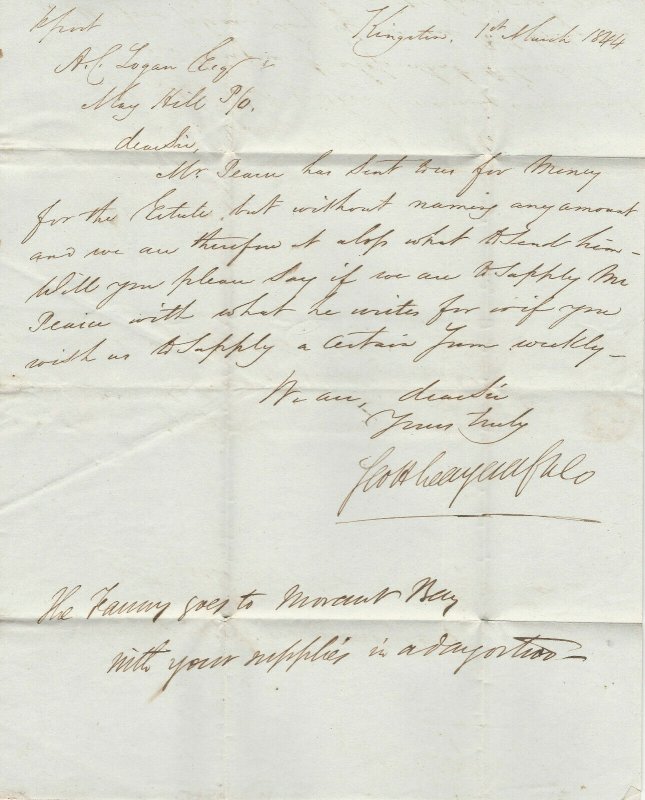 Kingston, 1st March 1844
A. C. Logan Esqr
May Hill P/O.
dear Sir,
Mr. Pearce has sent to us for Money
for the Estate, but without naming any amount
and we are therefore at a loss what to send him -
Will you please say if we are to supply Mr
Pearce with what he writes for or if you
wish us to supply a certain sum weekly -
We are, dear Sir
Yours truly
& Co
The Fanny goes to Morant Bay
with your supplies in a day or two -